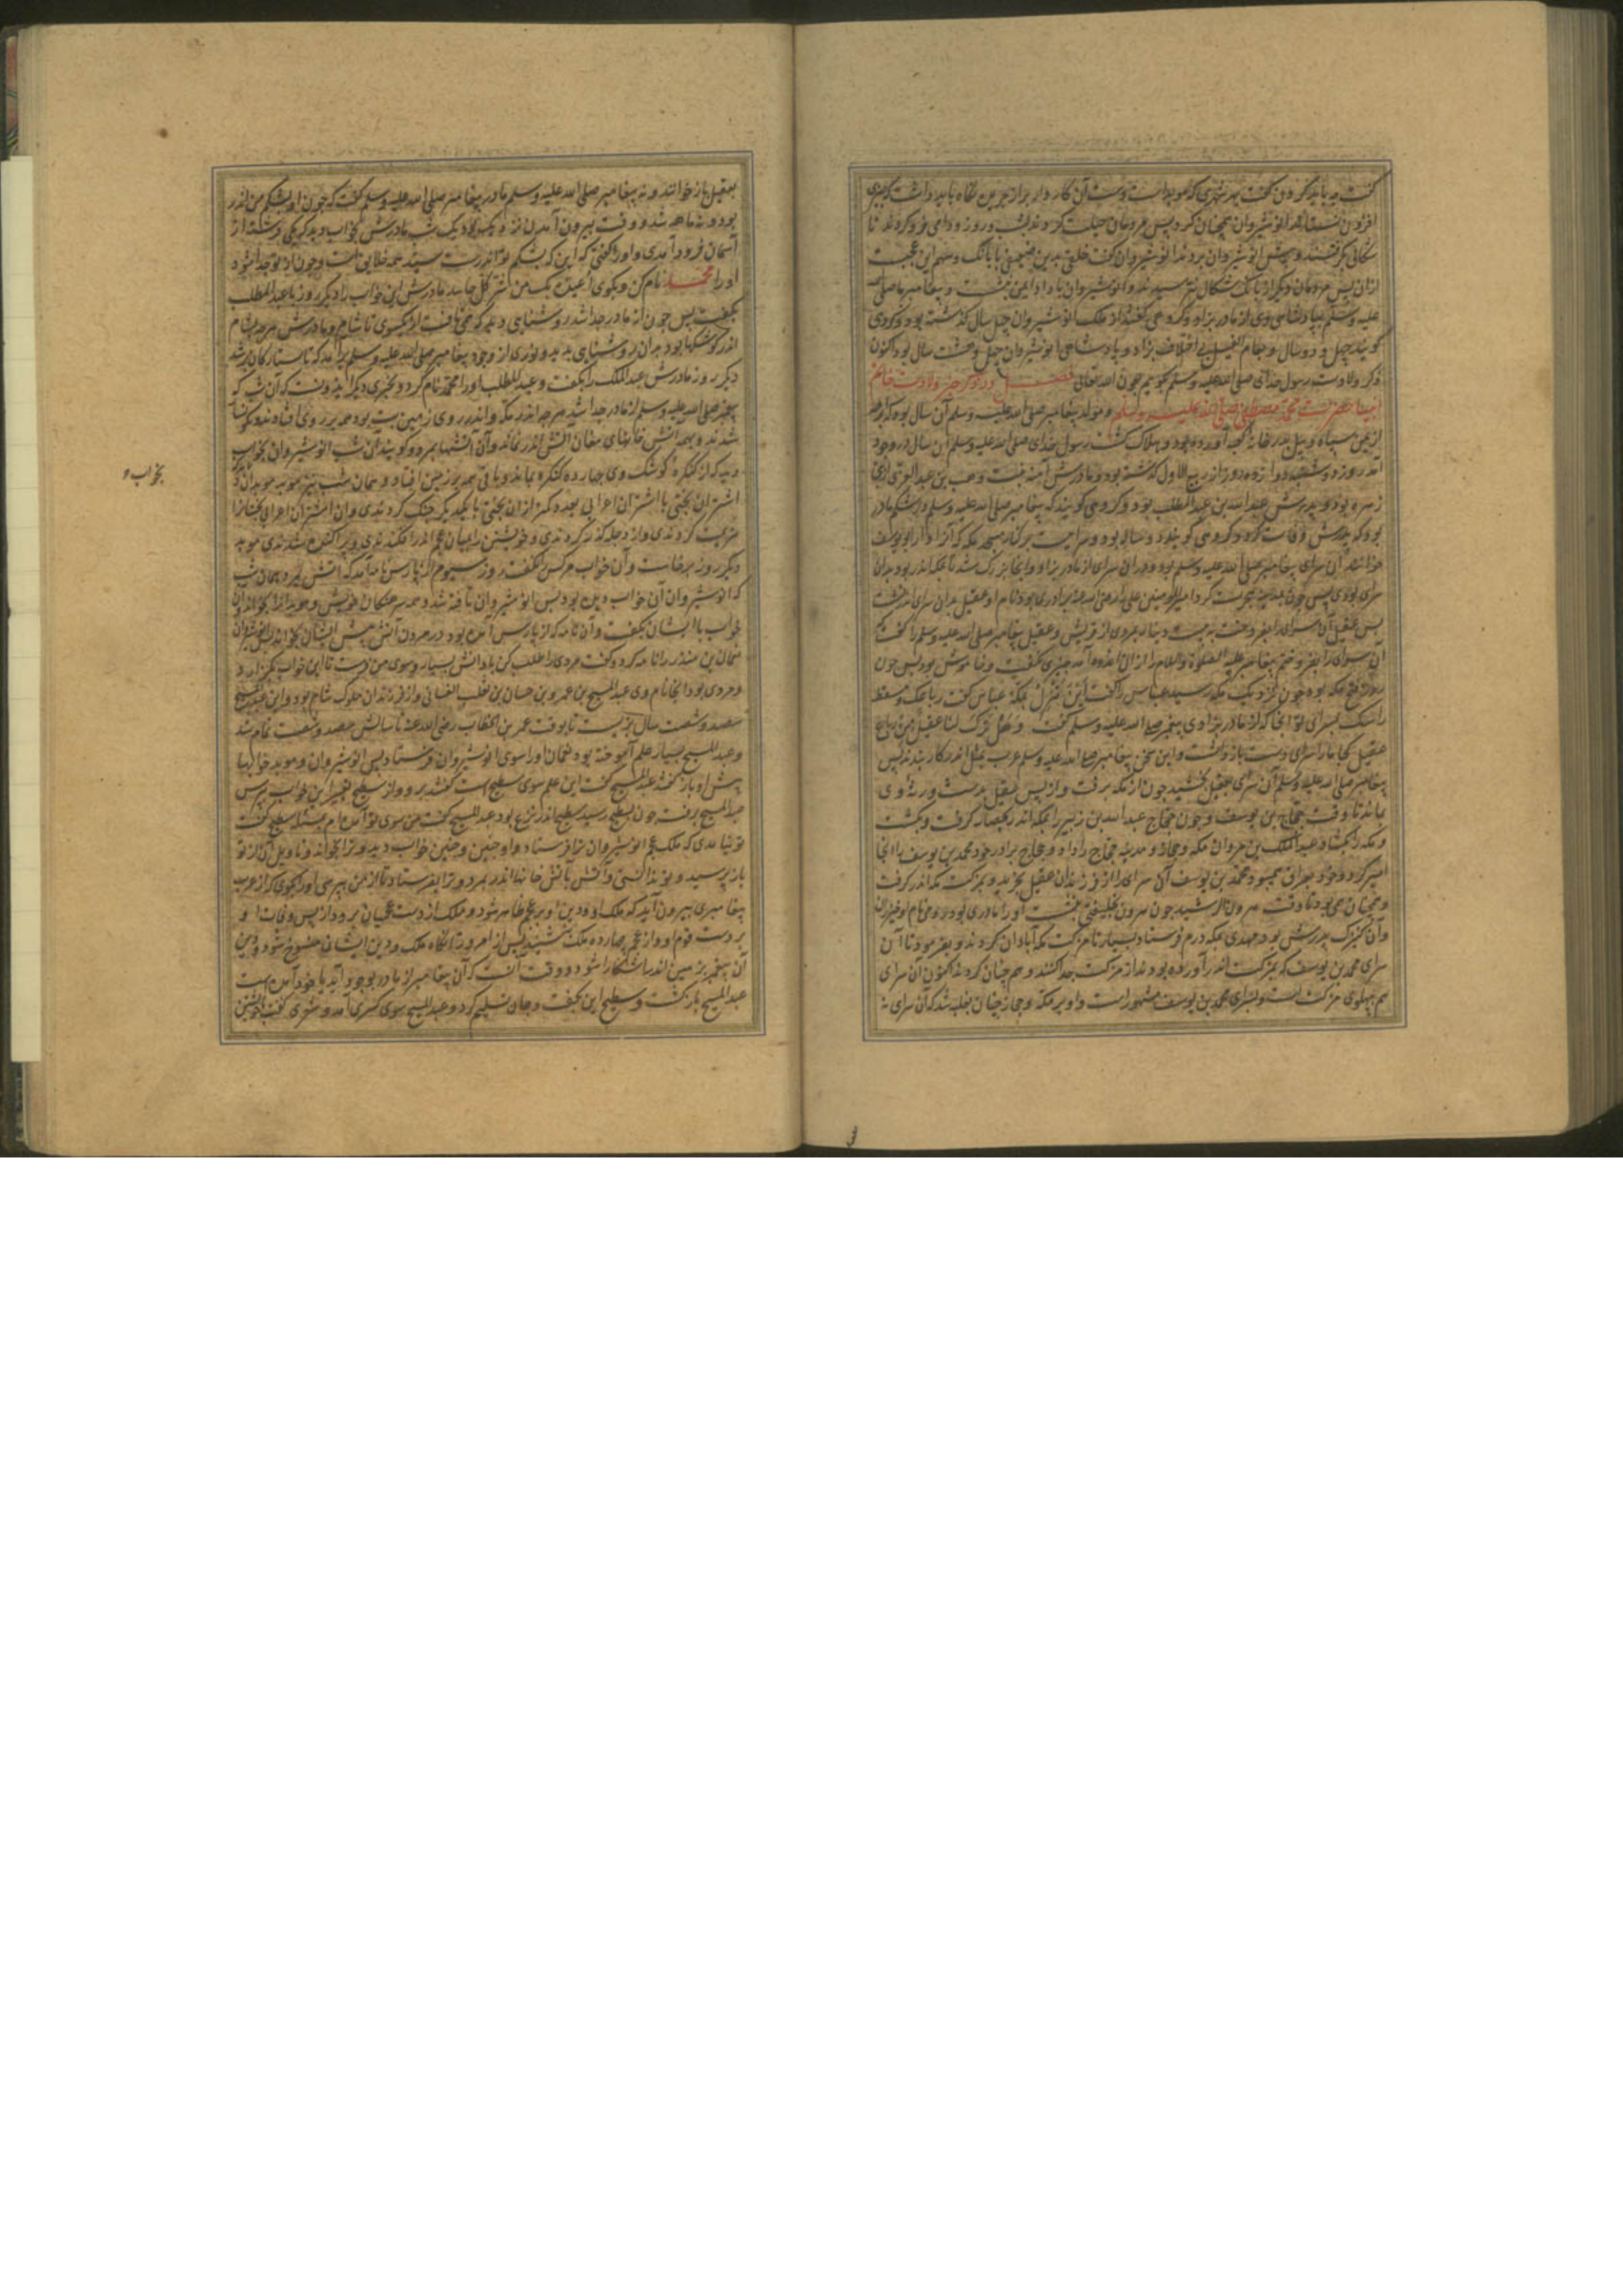 کفت چه باید کردن کفت بهر شهری که موبد است
افزدن نستاند انوشیروان همچنان کرد پس مردمان حیلت کردند بشب و روز و دامی فرو کردند تا
شکالی بکرفتند و پیش انوشیروان بردند انوشیروان کفت خلقی بدین ضعیفی با بانک و سهم این عجبست
ازان پس مردمان دیکر از بانک شکال نترسیدند و انوشیروان با داد ایمن بنشست و پیغامبر ما صلی الله
علیه وسلم بپادشاهی وی از مادر بزاد و کروهی کفتند از ملک انوشیروان چهل سال کذشته بود و کروهی
کویند چهل و دو سال و بعام الفیل بی اختلاف بزاد و پادشاهی انوشیروان چهل و هشت سال بود اکنون
ذکر ولادت رسول خدای صلی الله علیه وسلم بکویم بعون الله تعالی فصل در ذکر خبر ولادت خاتم
انبیا حضرت محمد مصطفی صلی الله علیه وسلم و مولد پیغامبر صلی الله علیه وسلم آن سال بود که ابرهه
از یمن سپاه و پیل بدر خانه کعبه آورده بود و هلاک کشت رسول خدای صلی الله علیه وسلم آن سال در وجود
آمد روز دوشنبه دوازده روز از ربیع الاول کذشته بود و مادرش آمنه بنت وهب بن عبد
زهره بود و پدرش عبدالله بن عبدالمطلب بود و کروهی کویند که پیغامبر صلی الله علیه وسلم در شکم مادر
بود که پدرش وفات کرد و کروهی کویند دو ساله بود و سراییست بر کنار مسجد مکه که آنرا دار ابو یوسف
خوانند آن سرای پیغامبر صلی الله علیه وسلم بود و دران سرای از مادر بزاد و انجا بزرک شد تا بمکه اندر بود بدان
سرای بودی پس چون بمدینه هجرت کرد امیرالمومنین علی را رضی الله عنه برادری بود نام او عقیل بدان سرای اندر نشست
پس عقیل آن سرای را بفروخت به بیست دینار بمردی از قریش و عقیل پیغامبر صلی الله علیه وسلم را کفت که
آن سرای را بفروختم پیغامبر علیه الصلاة والسلام را ازان اندوه آمد چیزی نکفت و خاموش بود پس چون
روز فتح مکه بود چون نزدیک مکه رسید عباس را کفت این ننزل بمکة عباس کفت
بسرای تو انجا که از مادر بزادی پیغمبر صلی الله علیه وسلم کفت وهل ترک لنا عقیل من رباع
عقیل کجا ما را سرای دست باز داشت و این سخن پیغامبر صلی الله علیه وسلم عرب بمثل اندر کار بندند پس
پیغامبر صلی الله علیه وسلم آن سرای بعقیل بخشید چون از مکه برفت و از پس عقیل بدست ورثهٔ وی
بماند تا وقت حجاج بن یوسف و چون حجاج عبدالله بن زبیر را بمکه اندر بحصار کرفت و بکشت
و مکه را بکشاد عبدالملک بن مروان مکه و حجاز و مدینه حجاج را داد و حجاج برادر خود محمد بن یوسف را انجا
امیر کرد و خود بعراق میبود محمد بن یوسف آن سرای را از فرزندان عقیل بخرید و بمزکت مکه اندر کرفت
و همچنان همی بود تا وقت هرون الرشید چون هرون بخلیفتی بنشست او را مادری بود رومی نام او خیزران
و آن کنیزک پدرش بود مهدی بمکه درم فرستاد بسیار تا مزکت مکه آبادان کردند و بفرمود تا آن
سرای محمد بن یوسف که بمزکت اندر آورده بودند از مزکت جدا کنند و همچنان کردند اکنون آن سرای
هم پهلوی مزکت است و بسرای محمد بن یوسف مشهور است و او بر مکه و حجاز چنان بغلبه شد که آن سرای نه
بعقیل باز خوانند و نه پیغامبر صلی الله علیه وسلم مادر پیغامبر صلی الله علیه وسلم کفت که چون او بشکم من اندر
بود و نه ماهه شد و وقت بیرون آمدن نزدیک بود یک شب مادرش بخواب دید که یکی فرشته از
آسمان فرود آمدی و او را کفتی که این که بشکم تو اندرست سید همه خلایق است و چون از تو جدا شود
او را محمد نام کن و بکوی اعیذه بک من شر کل حاسد مادرش این خواب را دیکر روز با عبدالمطلب
بکفت پس چون از مادر جدا شد روشنایی دید که همی تافت از یکسوی تا شام و مادرش هرچه بشام
اندر کوشکها بود بدان روشنایی بدید و نوری از وجود پیغامبر صلی الله علیه وسلم برآمد که تا ستارکان برشد
دیکر روز مادرش عبدالملک را بکفت و عبدالمطلب او را محمد نام کرد و بخبری دیکر ایدونست که آن شب که
پیغمبر صلی الله علیه وسلم از مادر جدا شد هرچه اندر مکه و اندر روی زمین بت بود همه بر روی افتادند و نکوسار
شدند و بهمه آتش خانهای مغان آتش اندر نماند و آن آتشها بمرد و کویند آن شب انوشیروان بخواب
دید که از کنکره کوشک وی چهارده کنکره بماند و باقی همه بر زمین افتاد و همان شب نیز موبد موبدان
اشتران بختی با اشتران اعرابی
هزیمت کردندی و از دجله کذر کردندی و خویشتن را بمیان عجم اندر افکندندی و پراکنده شدندی موبد
دیکر روز برخاست و آن خواب هرکس را نکفت روز سیوم از پارس نامه آمد که آتش بمرد همان شب
که انوشیروان آن خواب دیده بود پس انوشیروان تافته شد و همه سرهنکان خویش و موبد را بخواند آن
خواب با ایشان بکفت و آن نامه که از پارس آمده بود در مردن آتش پیش ایشان بخواند پس انوشیروان
نعمان بن منذر را نامه کرد و کفت مردی را طلب کن با دانش بسیار و سوی من فرست تا این خواب بکزارد
و مردی بود انجا نام وی عبدالمسیح بن عمرو بن حسان بن ثعلب الغسانی و از فرزندان ملوک شام بود و این عبدالمسیح
سیصد و شصت سال بزیست تا بوقت عمر بن الخطاب رضی الله عنه تا سالش سیصد و شصت تمام شد
و عبدالمسیح بسیار علم آموخته بود نعمان او را سوی انوشیروان فرستاد پس انوشیروان و موبد خوابها
پیش او باز کفتند عبدالمسیح کفت این علم سوی سطیح است کفتند برو و از سطیح تعبیر این خواب بپرس
عبدالمسیح برفت چون بسطیح رسید سطیح اندر نزع بود عبدالمسیح کفت من سوی تو آمده ام بمسئله سطیح کفت
تو نیامدی که ملک عجم انوشیروان ترا فرستاد و او چنین و چنین خواب دید و ترا بخواند و تاویل آن از تو
باز پرسید و تو ندانستی و آتش بآتش خانها اندر بمرد و ترا بفرستاد تا از من بپرسی او را بکوی که از عرب
پیغامبری بیرون آید که ملک او و دین او بر عجم ظاهر شود و ملک از دست عجمیان ببرد از پس وفات او
بر دست قوم او و از عجم چهارده ملک بنشینند پس از امروز تا آنکاه ملک و دین ایشان منسوخ شود و دین
آن پیغمبر بزمین اندر آشکارا شود و وقت آنست که آن پیغامبر از مادر بوجود آید یا خود آمده است
عبدالمسیح باز کشت و سطیح این بکفت و جان تسلیم کرد و عبدالمسیح سوی کسری آمد و شعری کفت
بخواب و